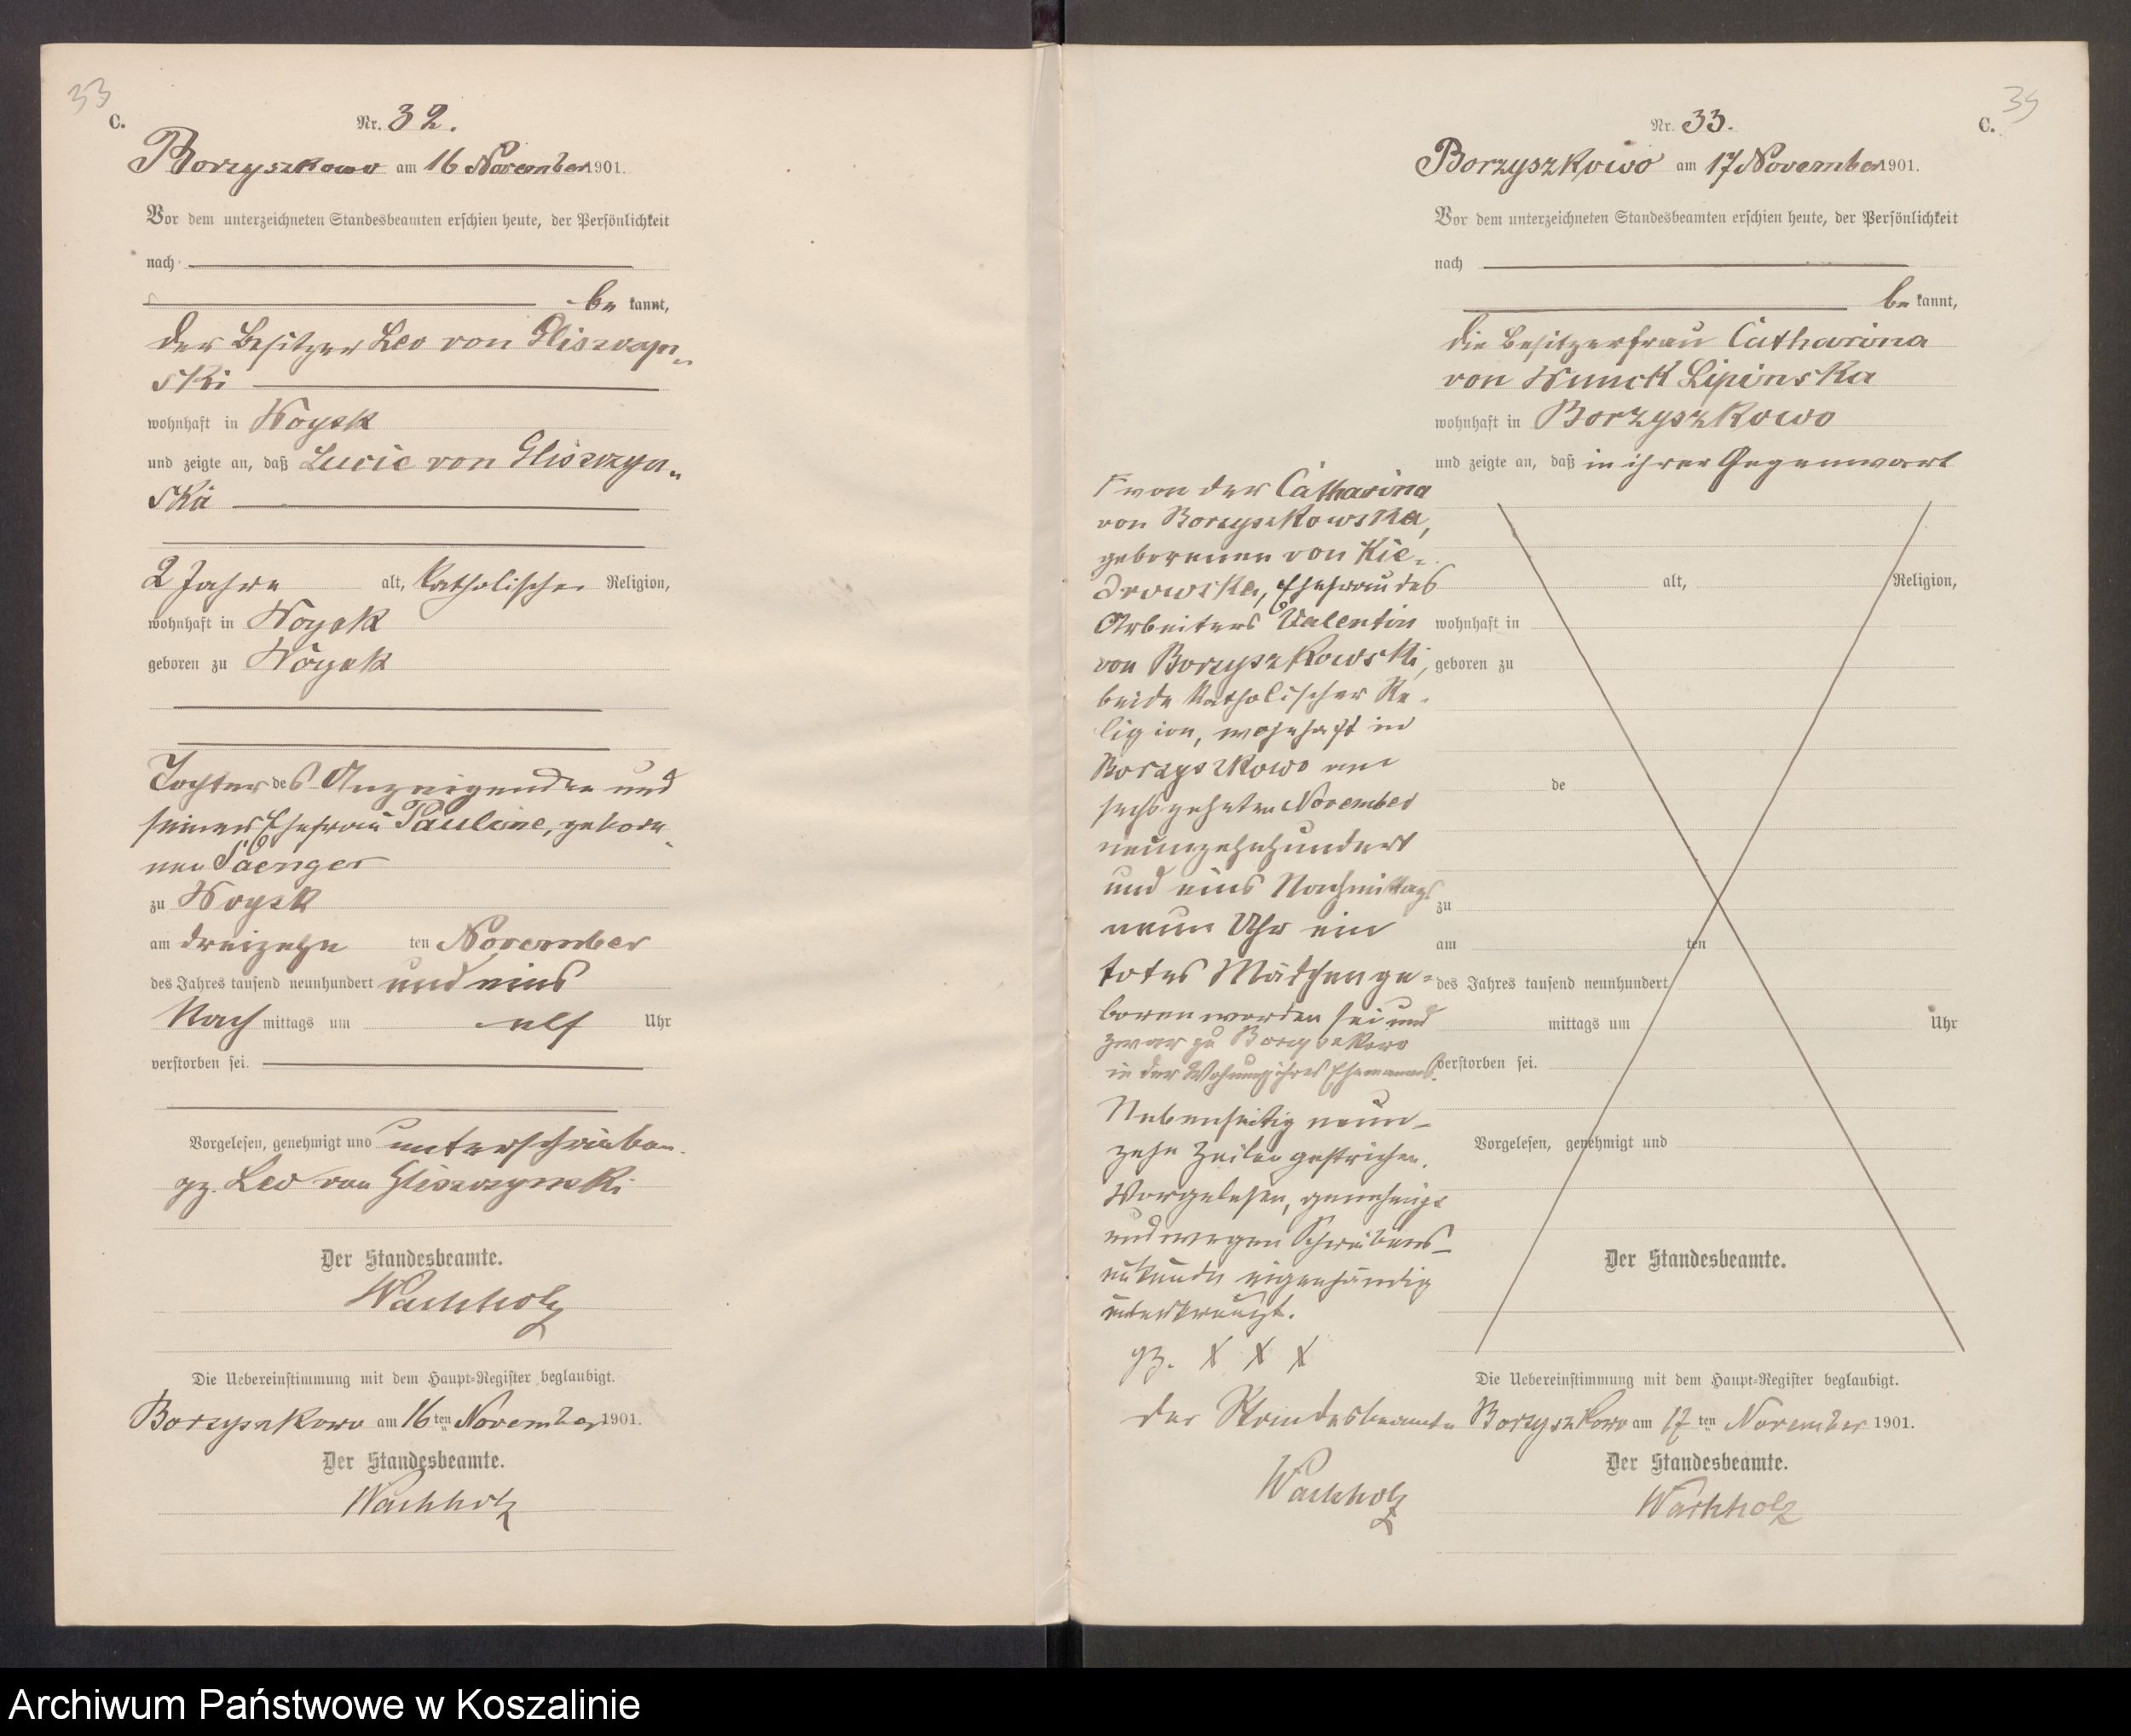 33
C.
Nr. 32.
Borzyszkowo am 16 November 1901.
Vor dem unterzeichneten Standesbeamten erschien heute, der Persönlichkeit
nach
be kannt,
der Besitzer Leo von Gliszczyn-
ski
wohnhaft in Woysk
und zeigte an, daß Lucie von Gliszczyn-
ska
2 Jahre alt, katholischer Religion,
wohnhaft in Woysk
geboren zu Woysk
Tochter des Anzeigenden und
seiner Ehefrau Pauline, gebore-
nen Saenger
zu Woysk
am dreizehn ten November
des Jahres tausend neunhundert und eins
Nach mittags um elf Uhr
verstorben sei.
Vorgelesen, genehmigt und unterschrieben.
gz. Leo von Gliszczynski
Der Standesbeamte.
Wachholz
Die Uebereinstimmung mit dem Haupt-Register beglaubigt.
Borzyszkowo am 16 ten November 1901.
Der Standesbeamte.
Wachholz
C.
Nr. 33.
Borzyszkowo am 17 November 1901.
Vor dem unterzeichneten Standesbeamten erschien heute, der Persönlichkeit
nach
be kannt,
die Besitzerfrau Catharina
von Wnuck Lipinska
wohnhaft in Borzyszkowo
und zeigte an, daß in ihrer Gegenwart
von der Catharina
von Borzyszkowska,
geborenen von Kie-
drowska, Ehefrau des
Arbeiters Valentin
von Borzyszkowski,
beide katholischer Re-
ligion, wohnhaft in
Borzyszkowo am
sechszehnten November
neunzehnhundert
und eins Nachmittags
neun Uhr ein
totes Mädchen ge-
boren worden sei und
zwar zu Borzyszkowo
in der Wohnung ihres Ehemannes.
Nebenseitig neun-
zehn Zeilen gestrichen.
Vorgelesen, genehmigt
und wegen Schreibens-
unkunde eigenhändig
unterkreuzt.
gz. X X X
Der Standesbeamte
Wachholz
alt, Religion,
wohnhaft in
geboren zu
de
zu
am ten
des Jahres tausend neunhundert
mittags um Uhr
verstorben sei.
Vorgelesen, genehmigt und
Der Standesbeamte.
Die Uebereinstimmung mit dem Haupt-Register beglaubigt.
Borzyszkowo am 17 ten November 1901.
Der Standesbeamte.
Wachholz
Archiwum Państwowe w Koszalinie